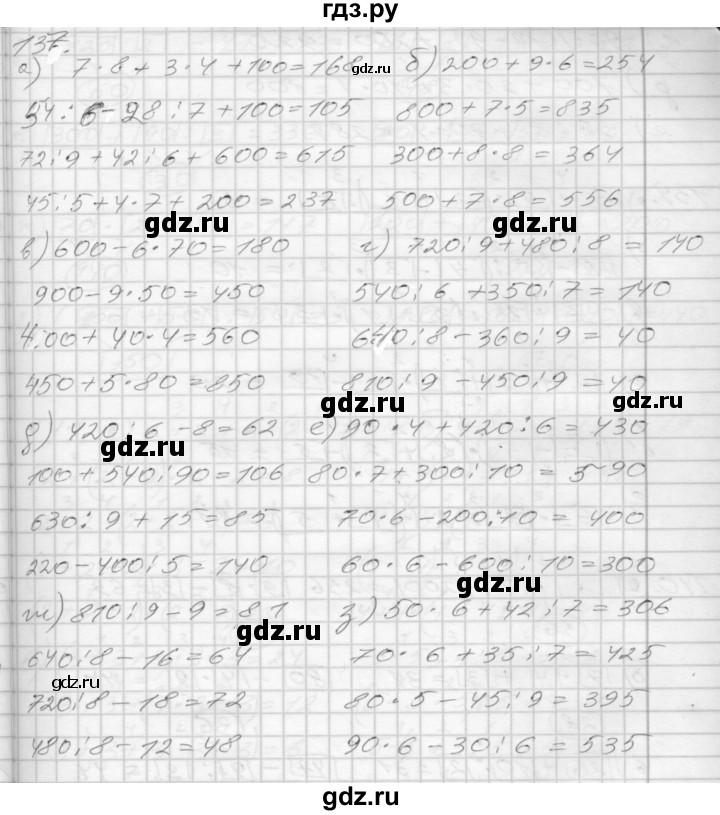 гдз.ру
137.
а) 7·8+3·4+100=168 б) 200+9·6=254
54:6-28:7+100=105 800+7·5=835
72:9+42:6+600=615 300+8·8=364
45:5+4·7+200=237 500+7·8=556
gdz.ru gdz.ru
в) 600-6·70=180 г) 720:9+480:8=140
900-9·50=450 540:6+350:7=140
400+40·4=560 640:8-360:9=40
450+5·80=850 810:9-450:9=40
gdz.ru
д) 420:6-8=62 е) 90·4+420:6=430
gdz.ru
100+540:90=106 80·7+300:10=590
630:9+15=85 70·6-200:10=400
220-400:5=140 60·6-600:10=300
gdz.ru
ж) 810:9-9=81 з) 50·6+42:7=306
gdz.ru
640:8-16=64 70·6+35:7=425
gdz.ru
720:8-18=72 80·5-45:9=395
480:8-12=48 90·6-30:6=535
gdz.ru